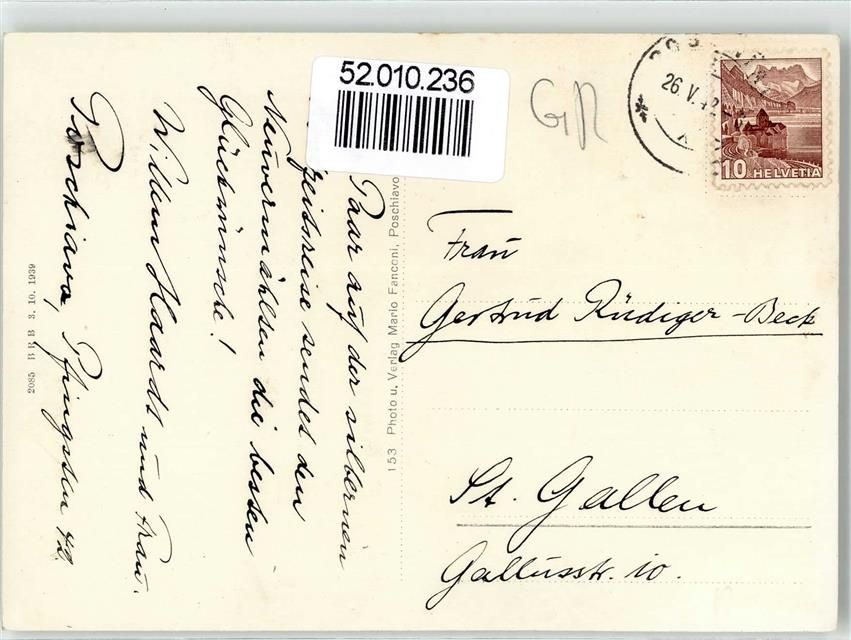 52.010.236
GR
26. V. 42
10 HELVETIA
Paar auf der silbernen
zeitsreise sendet den
Neuvermählten die besten
Glückwünsche!
Willem Haardt und Frau.
Poschiavo, Pfingsten 42.
Frau
Gertrud Rüdiger-Beck
St. Gallen
Gallusstr. 10.
153 Photo u. Verlag Mario Fanconi, Poschiavo
2085 BRB 3. 10. 1939